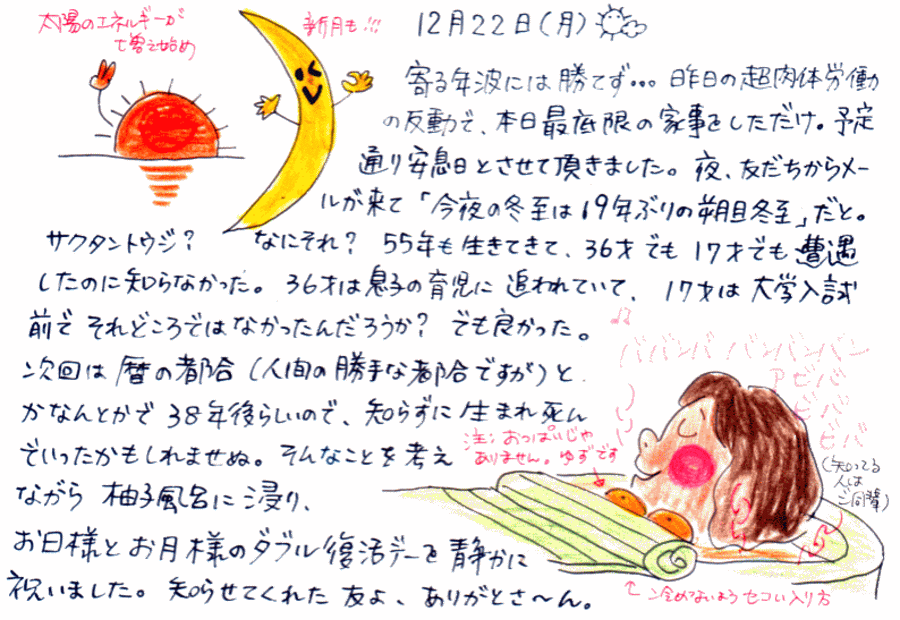 太陽のエネルギーが
増え始め
新月も!!!
12月22日(月)
寄る年波には勝てず…昨日の超肉体労働
の反動で、本日最底限の家事をしただけ。予定
通り安息日とさせて頂きました。夜、友だちからメー
ルが来て「今夜の冬至は19年ぶりの朔旦冬至」だと。
サクタントウジ? なにそれ? 55年も生きてきて、36才でも17才でも遭遇
したのに知らなかった。36才は息子の育児に追われていて、17才は大学入試
前でそれどころではなかったんだろうか? でも良かった。
次回は暦の都合(人間の勝手な都合ですが)と
かなんとかで38年後らしいので、知らずに生まれ死ん
でいったかもしれませぬ。そんなことを考え
ながら柚子風呂に浸り、
お日様とお月様のダブル復活デーを静かに
祝いました。知らせてくれた友よ、ありがとさ〜ん。
♫
ババンバ バンバンバン
アビバ
ビバ
ビバ
(知ってる
人は
ご同輩)
注:おっぱいじゃ
ありません。ゆずです
冷めないようセコい入り方